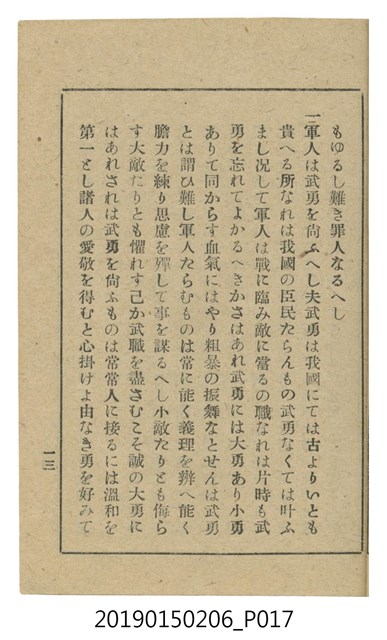 もゆるし難き罪人なるへし
一軍人は武勇を尙ふへし夫武勇は我國にては古よりいとも
貴へる所なれは我國の臣民たらんもの武勇なくては叶ふ
まし况して軍人は戰に臨み敵に當るの職なれは片時も武
勇を忘れてよかるへきかさはあれ武勇には大勇あり小勇
ありて同からす血氣にはやり粗暴の振舞なとせんは武勇
とは謂ひ難し軍人たらむものは常に能く義理を辨へ能く
膽力を練り思慮を殫して事を謀るへし小敵たりとも侮ら
す大敵たりとも懼れす己か武職を盡さむこそ誠の大勇に
はあれされは武勇を尙ふものは常常人に接るには溫和を
第一とし諸人の愛敬を得むと心掛けよ由なき勇を好みて
一三
20190150206_P017